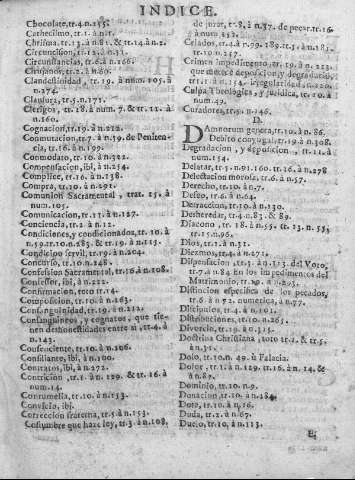 INDICE.
Chocolate, tr.4. n.155.
Cathecismo, tr.1. à n.1.
Chrisma, tr.13. à n.81. & tr.14. à n.2.
Circuncision, tr.12. à n.31.
Circunstancias, tr.6. à n.66.
Christianos, tr.2. à n.60.
Clandestinidad, tr.19. à num.105. à
n.174.
Clausura, tr.5. n.171.
Clerigos, tr.18. à num.7. & tr.12. à
n.160.
Cognacion, tr.19. à n.212.
Commutacion, tr.7. à n.59. de Peniten-
cia, tr.16. à n.199.
Commodato, tr.10. à n.132.
Compensacion, ibi, à n.254.
Complice, tr.16. à n.138.
Compra, tr.10. à n.291.
Comunion Sacramental, trat.15. à
num.105.
Comunicacion, tr.11. à n.127.
Conciencia, tr.2. à n.12.
Condiciones, y condicionados, tr.10. à
n.59. tr.10. n.283. & tr.19. à n.115.
Condicion servil, tr.19. à n.204.
Concurso, tr.10. n.148.
Confesion Sacramental, tr.16. à n.108.
Confessor, ibi, à n.222.
Confirmacion, toto tr.14.
Composicion, tr.10. à n.263.
Consanguinidad, tr.19. à n.212.
Consanguineos, y cognatos, que tie-
nen deshonestidades entre si, tr.4. à
n.143.
Consenciente, tr.10. à n.106.
Consiliante, ibi, à n.100.
Contratos, ibi, à n.272.
Contricion, tr.1. à n.129. & tr.16. à
num.14.
Contumelia, tr.10. à n.233.
Convicio, ibi.
Correccion fraterna, tr.5. à n.153.
Costumbre que haze ley, tr.3. à n.108.
de jurar, tr.8. à n.37. de pecar, tr.16.
à num.252.
Criados, tr.4. à n.99. 189. tr.5. à n.181.
tr.10. à n.257.
Crimen impedimento, tr.19. à n.223.
que merece deposicion, y degradacion,
tr.11. à n.154. irregularidad, n.220.
Culpa Theologica, y juridica, tr.10. à
num.49.
Curadores, tr.5. n.146.
D.
DAmnorum genera, tr.10. à n.86.
Debito conyugal, tr.19. à n.308.
Degradacion, y deposicion, tr.11. à
num.154.
Delatar, tr.5. à n.91. 160. tr.16. à n.278
Delectacion morosa, tr.6. à n.57.
Derecho, tr.10. à n.7.
Deseo, tr.6. à n.64.
Detraccion, tr.10. à n.130.
Desheredar, tr.4. à n.83. & 89.
Diacono, tr.18. à n.55. tr.13. n.53,
tr.15. n.96.
Dios, tr.2. à n.31.
Diezmos, tr.4. à n.171.
Dispensacion, tr.3. à n.113. del Voto,
tr.7. à n.84. en los impedimentos del
Matrimonio, tr.19. à n.295.
Distincion especifica de los pecados,
tr.6. à n.72. numerica, à n.77.
Discipulos, tr.4. à n.103.
Distribuciones, tr.10. n.265.
Divorcio, tr.19. à n.315.
Doctrina Christiana, toto tr.1. & tr.5.
à n.33.
Dolo, tr.10. n.49. à Falacia.
Dolor, tr.1. à n.129. tr.16. à n.14. &
à n.87.
Dominio, tr.10. n.9.
Donacion, tr.10. à n.284.
Dote, tr.10. à n.16.
Duda, tr.2. à n.67.
Duelo, tr.10. à n.113.
E;